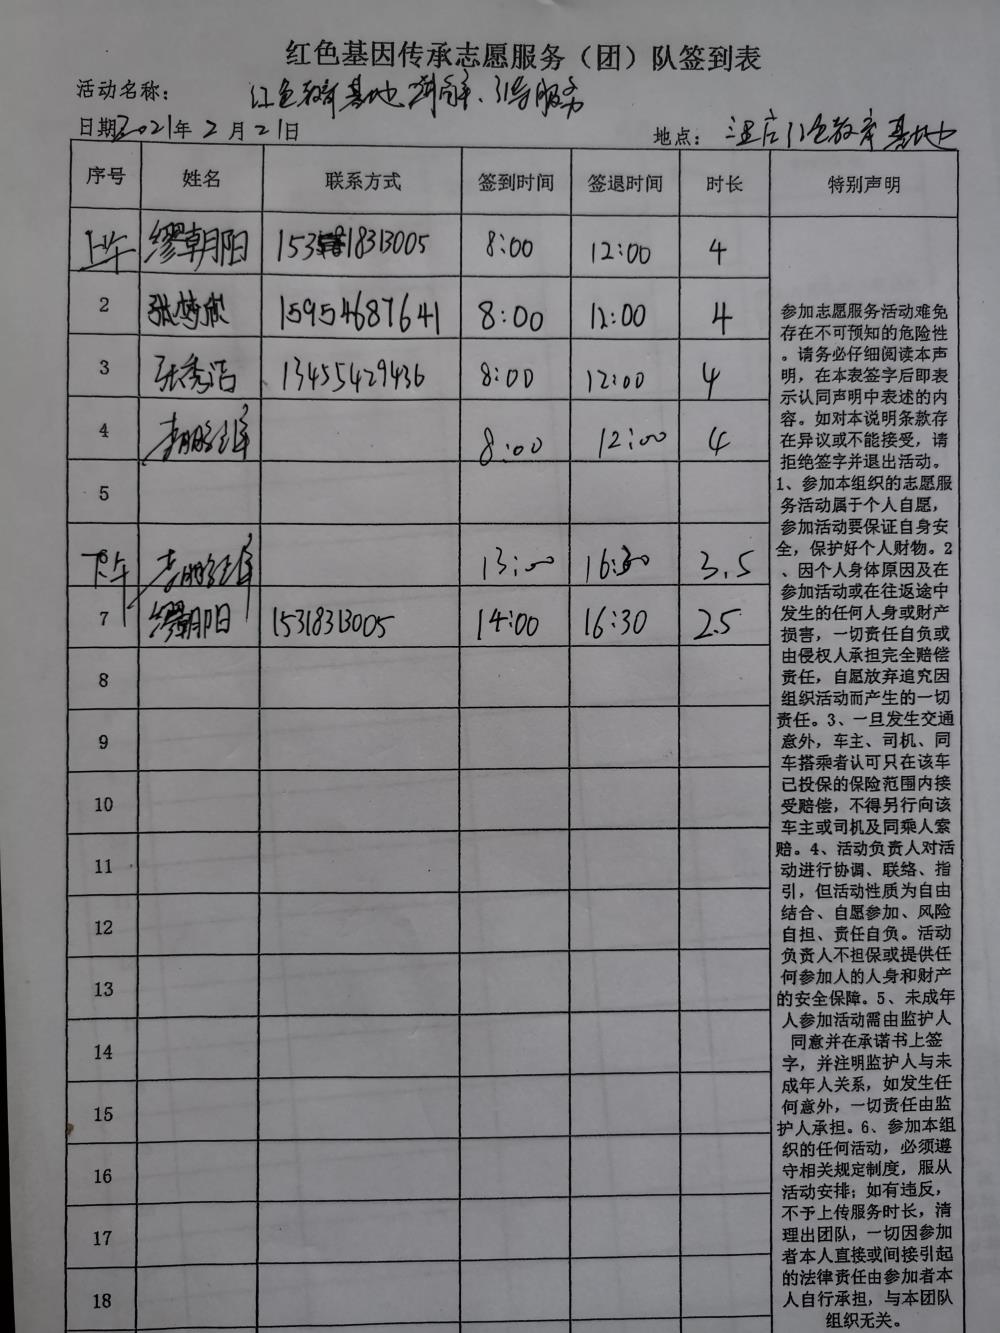 红色基因传承志愿服务（团）队签到表
活动名称： 红色教育基地讲解、引导服务
日期2021年2月21日 地点： 红色教育基地
序号 姓名 联系方式 签到时间 签退时间 时长 特别声明
上午 缪朝阳 15318313005 8:00 12:00 4
2 张梦欣 15954687641 8:00 12:00 4
3 张秀洁 13455429436 8:00 12:00 4
4 8:00 12:00 4
5
下午 13:00 16:30 3.5
7 缪朝阳 15318313005 14:00 16:30 2.5
8
9
10
11
12
13
14
15
16
17
18
参加志愿服务活动难免
存在不可预知的危险性
。请务必仔细阅读本声
明，在本表签字后即表
示认同声明中表述的内
容。如对本说明条款存
在异议或不能接受，请
拒绝签字并退出活动。
1、参加本组织的志愿服
务活动属于个人自愿，
参加活动要保证自身安
全，保护好个人财物。2
、因个人身体原因及在
参加活动或在往返途中
发生的任何人身或财产
损害，一切责任自负或
由侵权人承担完全赔偿
责任，自愿放弃追究因
组织活动而产生的一切
责任。3、一旦发生交通
意外，车主、司机、同
车搭乘者认可只在该车
已投保的保险范围内接
受赔偿，不得另行向该
车主或司机及同乘人索
赔。4、活动负责人对活
动进行协调、联络、指
引，但活动性质为自由
结合、自愿参加、风险
自担、责任自负。活动
负责人不担保或提供任
何参加人的人身和财产
的安全保障。5、未成年
人参加活动需由监护人
同意并在承诺书上签
字，并注明监护人与未
成年人关系，如发生任
何意外，一切责任由监
护人承担。6、参加本组
织的任何活动，必须遵
守相关规定制度，服从
活动安排；如有违反，
不予上传服务时长，清
理出团队，一切因参加
者本人直接或间接引起
的法律责任由参加者本
人自行承担，与本团队
组织无关。